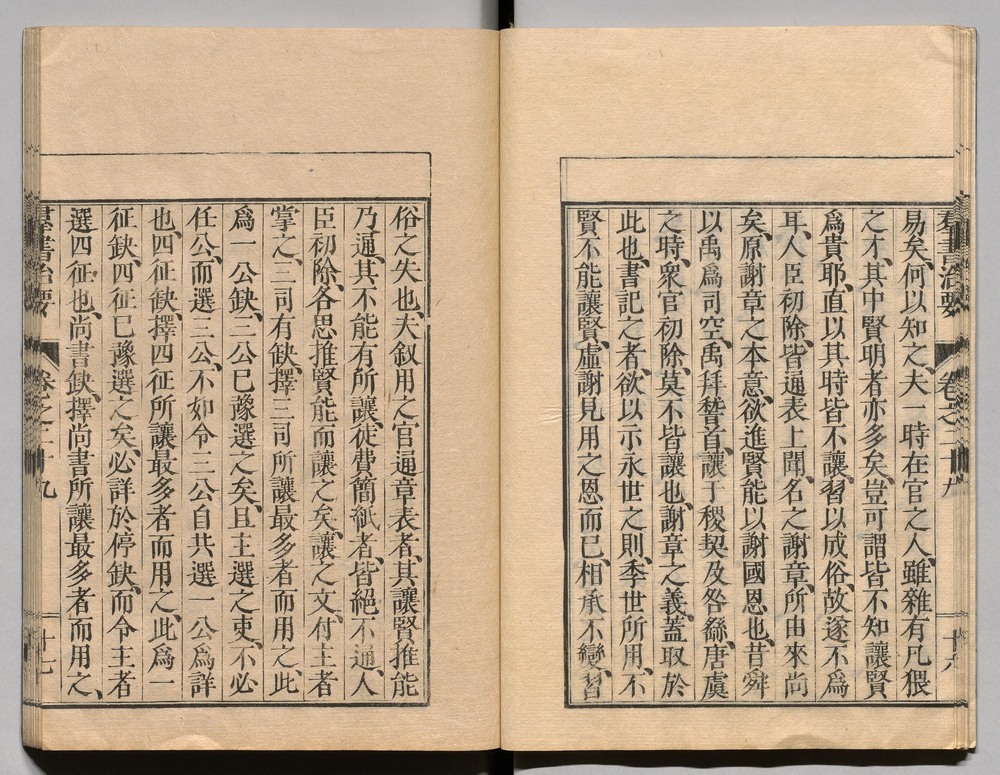 易矣、何以知之、夫一時在官之人、雖雜有凡猥
之才、其中賢明者亦多矣、豈可謂皆不知讓賢
爲貴耶、直以其時皆不讓、習以成俗、故遂不爲
耳、人臣初除、皆通表上聞、名之謝章、所由來尚
矣、原謝章之本意、欲進賢能以謝國恩也、昔舜
以禹爲司空、禹拜䭫首、讓于稷契及咎繇、唐虞
之時、衆官初除、莫不皆讓也、謝章之義、蓋取於
此也、書記之者、欲以示永世之則、季世所用、不
賢不能讓賢、虛謝見用之恩而已、相承不變、習
俗之失也、夫叙用之官、通章表者、其讓賢推能
乃通、其不能有所讓、徒費簡紙者、皆絕不通、人
臣初除、各思推賢能而讓之矣、讓之文、付主者
掌之、三司有缺、擇三司所讓最多者而用之、此
爲一公缺、三公已豫選之矣、且主選之吏、不必
任公、而選三公、不如令三公自共選一公爲詳
也、四征缺、擇四征所讓最多者而用之、此爲一
征缺、四征已豫選之矣、必詳於停缺、而令主者
選四征也、尚書缺、擇尚書所讓最多者而用之、
羣書治要 卷之二十九 十七